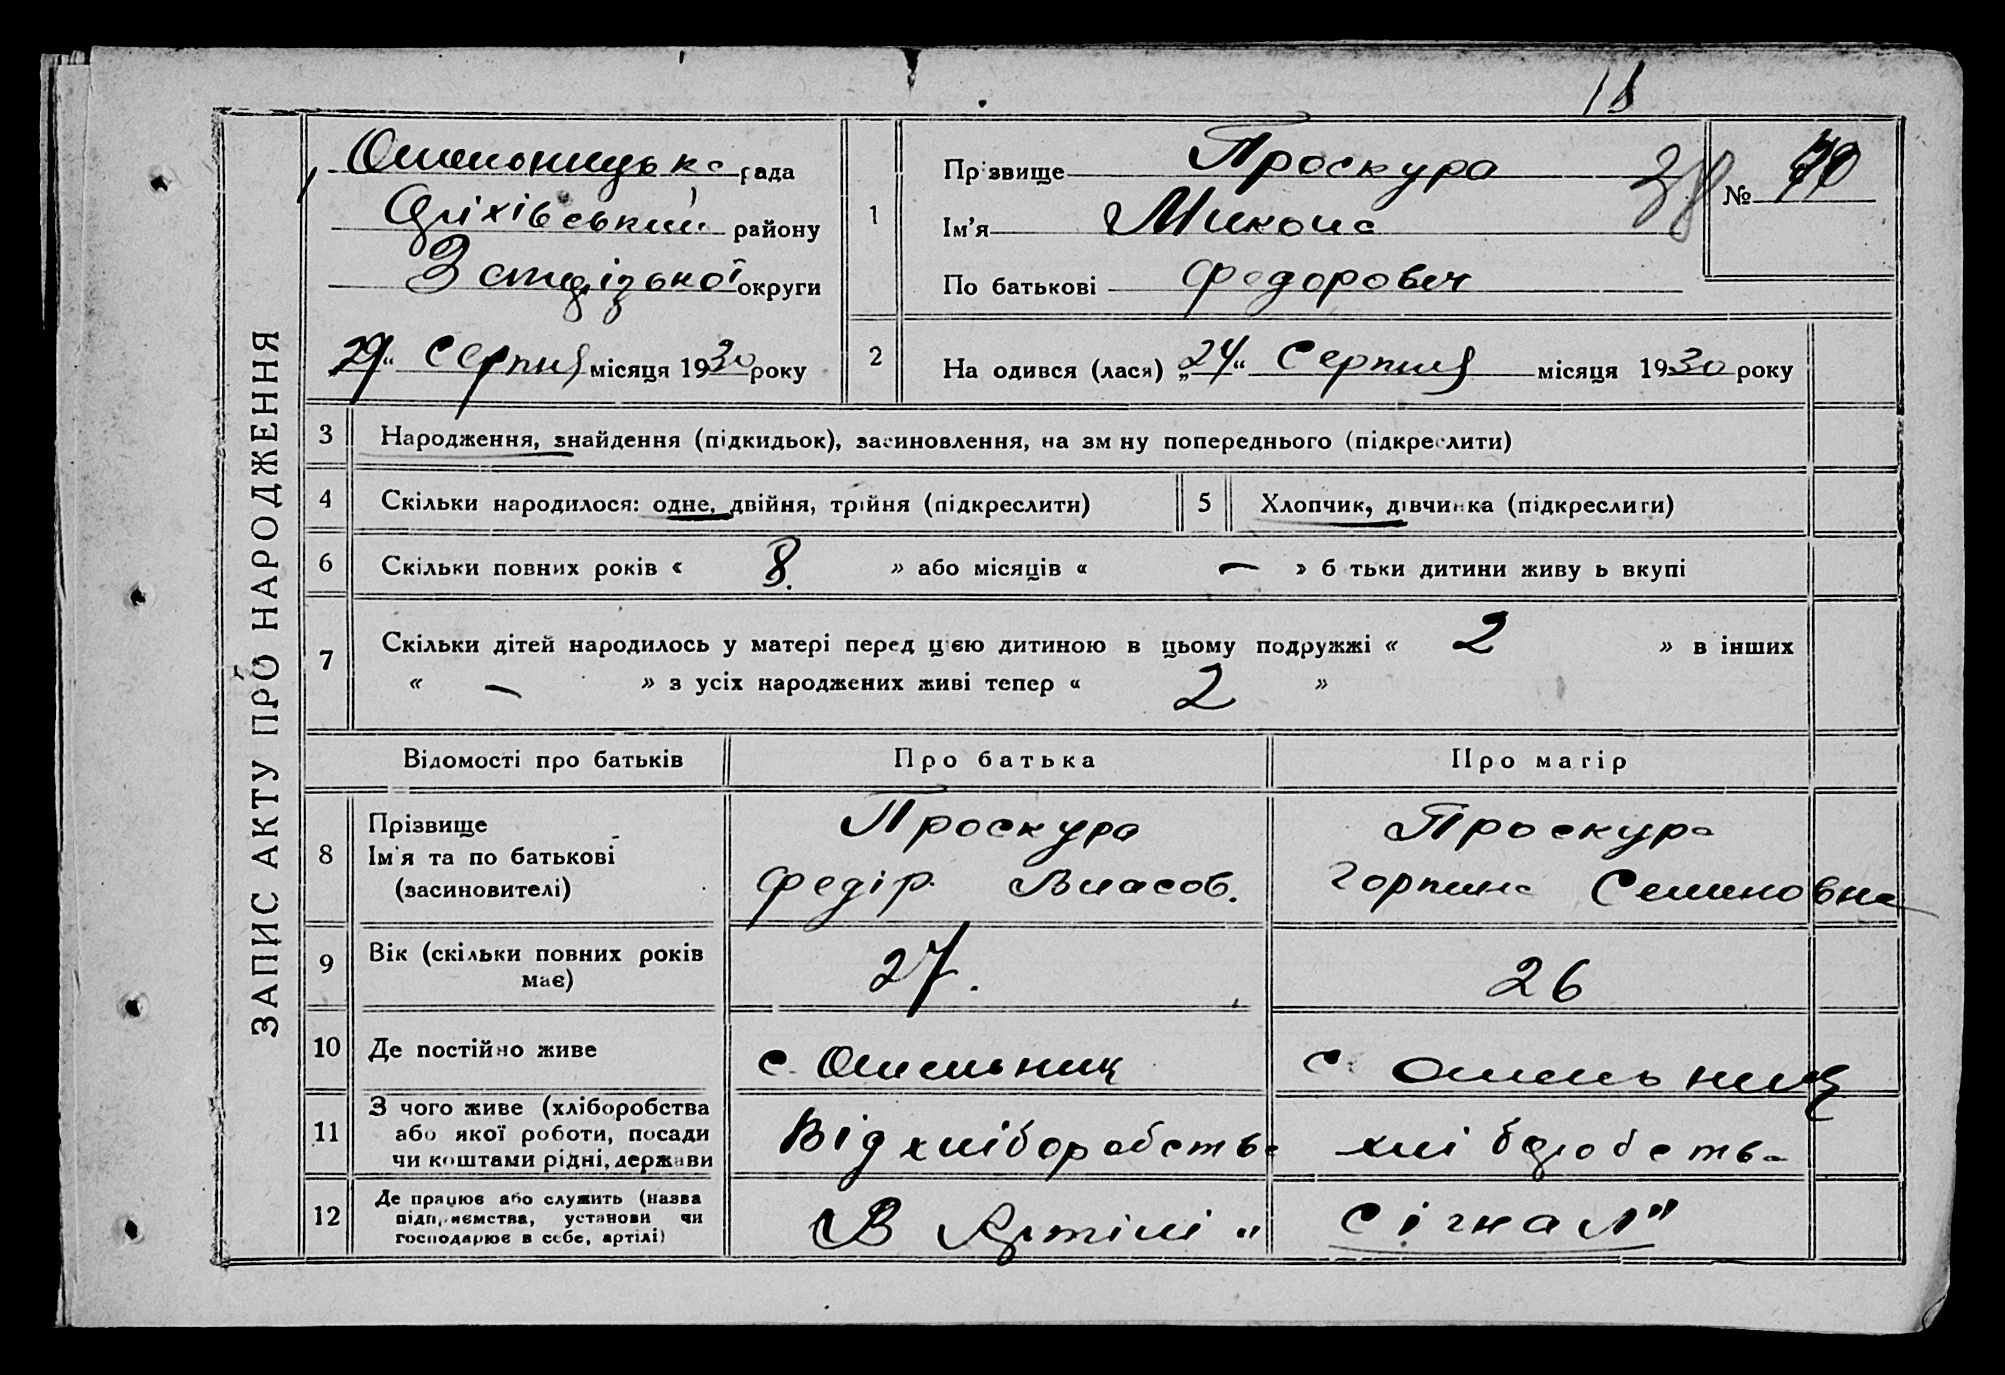 18
ЗАПИС АКТУ ПРО НАРОДЖЕННЯ
Омельницька рада
Оріхівський району
Запорізької округи
29 “ Серпня місяця 1930 року
1
Прізвище Проскура
Ім’я Микола
По батькові Федорович
38
№ 70
2
На одився (лася) „24“ Серпня місяця 1930 року
3 Народження, знайдення (підкидьок), засиновлення, на зм ну попереднього (підкреслити)
4 Скільки народилося: одне, двійня, трійня (підкреслити) 5 Хлопчик, дівчинка (підкреслити)
6 Скільки повних років « 8. » або місяців « – » б тьки дитини живу ь вкупі
7 Скільки дітей народилось у матері перед цією дитиною в цьому подружжі « 2 » в інших
« – » з усіх народжених живі тепер « 2 »
Відомості про батьків Про батька Про матір
8 Прізвище Проскура Проскура
Ім’я та по батькові Федір Власов. Горпина Семеновна
(засиновителі)
9 Вік (скільки повних років має) 27. 26
10 Де постійно живе с. Омельник с. Омельник
11 З чого живе (хліборобства
або якої роботи, посади
чи коштами рідні, держави Від хліборобства хліборобства
12 Де працює або служить (назва
підприємства, установи чи
господарює в себе, артілі) В Артілі „ Сігнал”